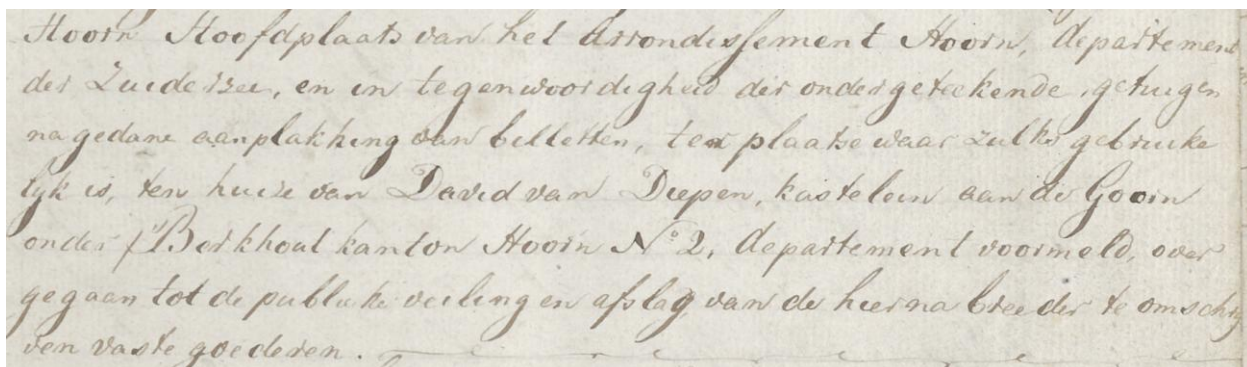 Hoorn Hoofdplaats van het Arrondissement Hoorn, departement
der Zuiderzee, en in tegenwoordigheid der ondergeteekende getuigen
na gedane aanplakking van billetten, ter plaatse waar zulks gebruike
lyk is, ten huize van David van Diepen, kastelein aan de Goorn
onder Berkhout kanton Hoorn N.o 2, departement voormeld, over
gegaan tot de publieke veiling en afslag van de hierna breeder te omschry
ven vaste goederen.